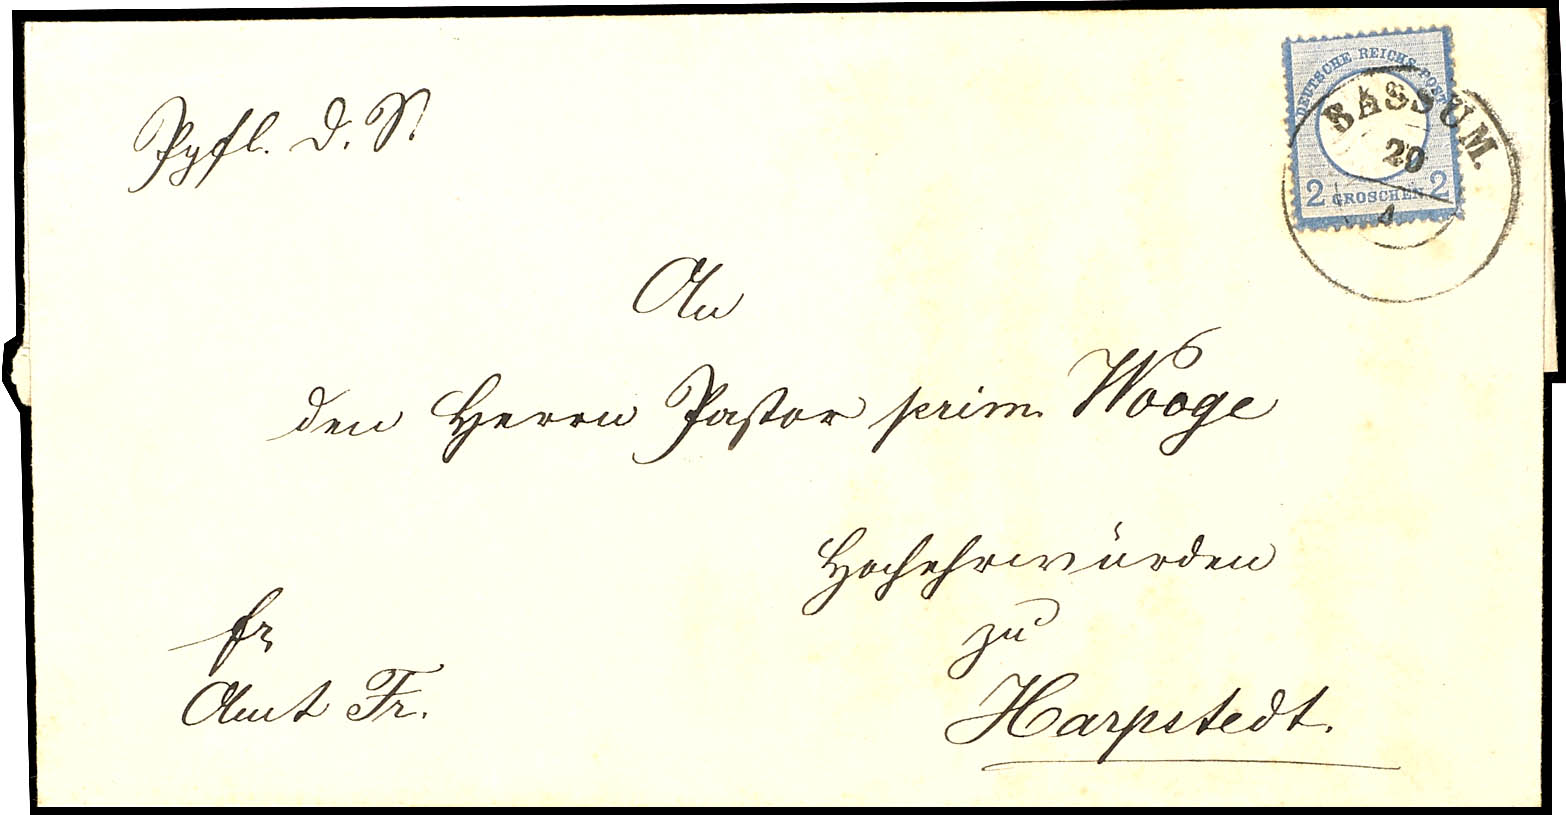 Pysl. D. S.
DEUTSCHE REICHS-POST
2 GROSCHEN 2
BASSUM.
20
4
An
den Herrn Pastor prim. Wooge
Hochehrwürden
zu
Harpstedt.
fr
Amt Fr.